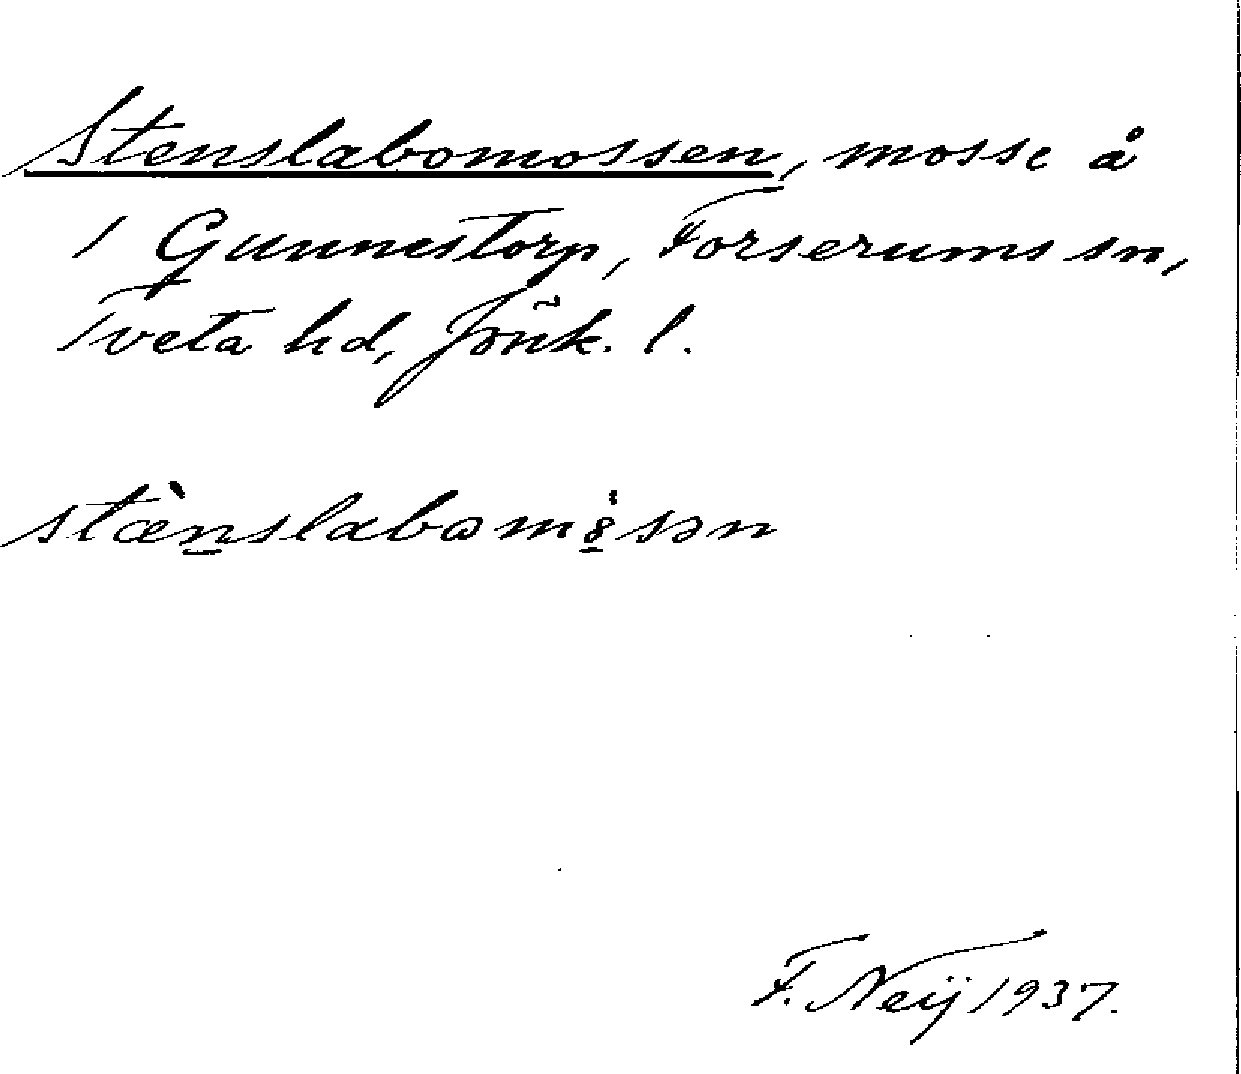 Stenslabomossen, mosse å
1 Gunnestorp, Forserums sn,
Tveta hd, Jönk. l.
stæ̀n̠slabɷmꞝ̠sən
F. Neij 1937.